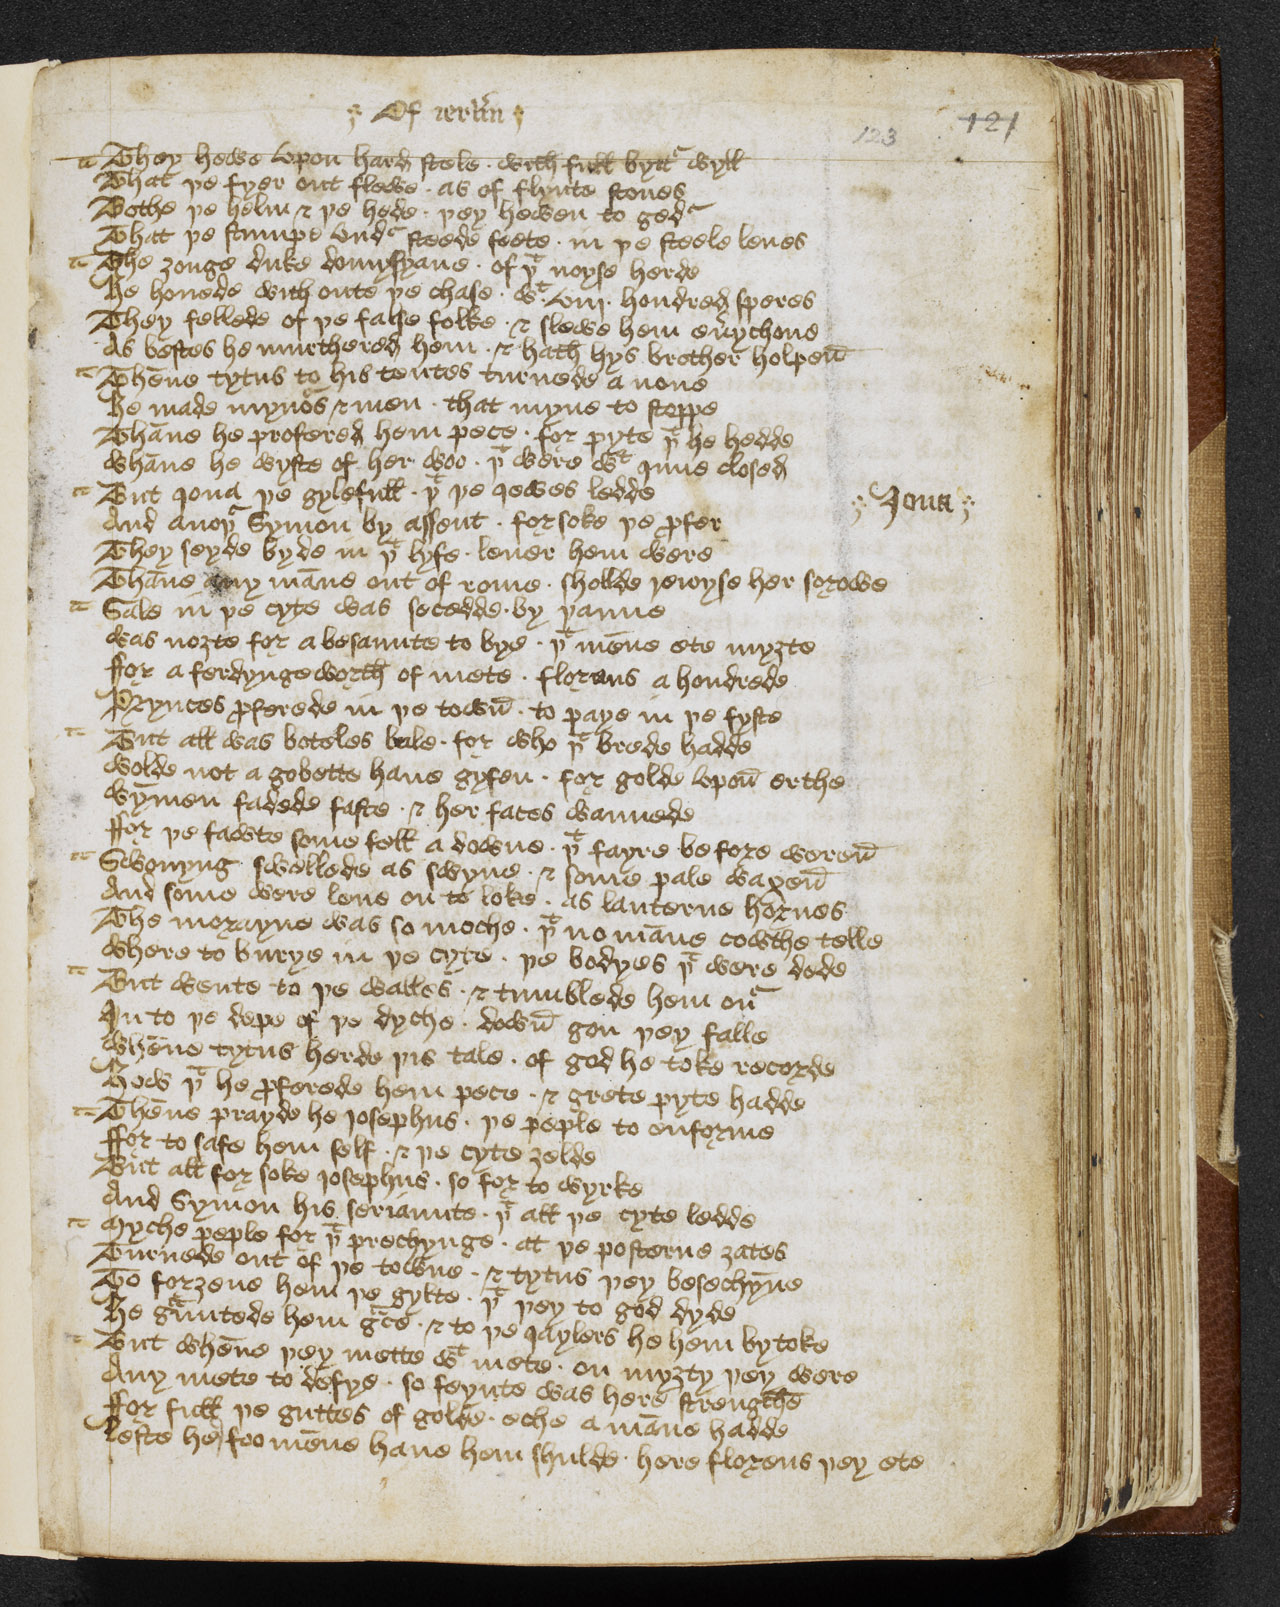 Of ierlm̄
123 121
They hewe vpon hard stele · with full bytt᾽ wyll
That þe fyer out flewe · as of flynte stones
Bothe þe helm & þe hede · þey hewen to ged᾽
That þe stumpe vnd᾽ steede feete · in þe steele leues
The ȝonge duke domysyane · of þᵗ noyse herde
He houede with oute þe chase · wᵗ · viii · hondred speres
They fellede of þe false folke · & slewe hem eu᾽ychone
As bestes he murthered hem · & hath hys brother holpen̄
Thēne tytus to his tentes turnede a none
He made mynōs & men · that myne to stoppe
Thāne he profered hem pece · for pyte þᵗ he hedde
whāne he wyste of her woo · þᵗ were wᵗ inne closed
But Iona þe gylefull · þᵗ þe iewes ledde
Iona
And anoþ᾽ Symon by assent · forsoke þe pfer
They seyde byde in þᵗ lyfe · leuer hem were
Thāne any māne out of rome · shollde reioyse her sorowe
Sale in þe cyte was secedde · by þanne
was noȝte for a besaunte to bye · þᵗ mēne ete myȝte
ffor a ferdyngeworth of mete · florans a hondrede
Prynces pferede in þe town̄ · to paye in þe fyste
But all was boteles bale · for who þᵗ brede hadde
wolde not a gobette haue gyfen · for golde vpon̄ erthe
wȳmen fadede faste · & her faces wannede
ffor þe fawte some fell a downe · þᵗ fayre before weren̄
Swonyng swellede as swyne · & some pale waxen̄
And some were lene on to loke · as lanterne hornes
The morayne was so moche · þᵗ no māne cowthe telle
where to burye in þe cyte · þe bodyes þᵗ were dede
But wente to þe walles · & tumblede hem ou᾽
In to þe depe of þe dyche · down̄ gon þey falle
whēne tytus herde þis tale · of god he toke recorde
How þᵗ he pferede hem pece · & grete pyte hadde
Thēne prayde he iosephus · þe peple to enforme
ffor to safe hem self · & þe cyte ȝelde
But all for soke iosephus · so for to wyrke
And Symon his seriaunte · þᵗ all þe cyte ledde
Myche peple for þᵗ prechynge · at þe posterne ȝates
Turnede out of þe towne · & tytus þey besechȳne
To forȝeue hem þe gylte · þᵗ þey to god dyde
He gᵃuntede hem gᵃce · & to þe iaylers he hem bytoke
But whēne þey mette wᵗ mete · on myȝty þey were
Any mete to defye · so feynte was here strengthe
ffor full þe guttes of golde · eche a māne hadde
Leste her foo mēne haue hem shulde · here florens þey ete